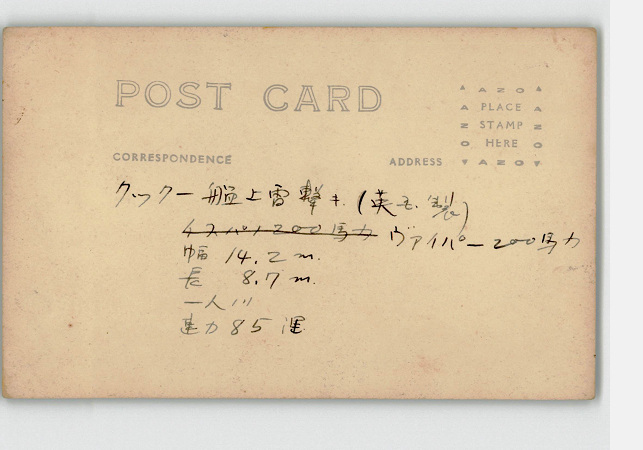 POST CARD
▲ AZO ▲
A PLACE A
Z STAMP Z
O HERE O
▼ AZO ▼
CORRESPONDENCE ADDRESS
クックー艦上雷撃キ.(英モ.製)
イスパノ200馬力 ヴァイパー200馬力
幅 14.2 m.
長 8.7 m.
一人
速力 85 浬